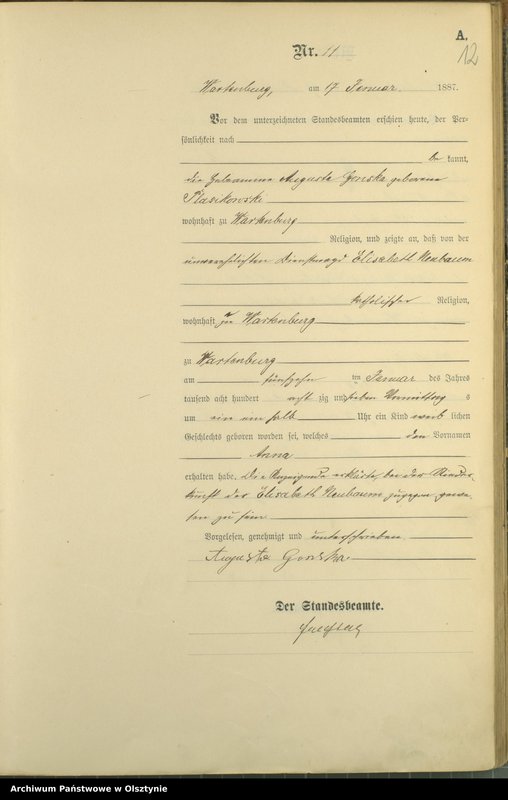 A.
12
Nr. 11
Wartenburg, am 17 Januar 1887.
Vor dem unterzeichneten Standesbeamten erschien heute, der Per-
sönlichkeit nach
be kannt,
die Hebeamme Auguste Gonska geborene
Plasikowski
wohnhaft zu Wartenburg
Religion, und zeigte an, daß von der
unverehelichten Dienstmagd Elisabeth Neubaum
katholischer Religion,
wohnhaft zu Wartenburg
zu Wartenburg
am fünfzehn ten Januar des Jahres
tausend acht hundert acht zig und sieben Vormittag s
um ein ein halb Uhr ein Kind weib lichen
Geschlechts geboren worden sei, welches den Vornamen
Anna
erhalten habe. Die Anzeigende erklärte, bei der Nieder
kunft der Elisabeth Neubaum zugegen gewe
sen zu sein
Vorgelesen, genehmigt und unterschrieben
Auguste Gonska
Der Standesbeamte.
Archiwum Państwowe w Olsztynie